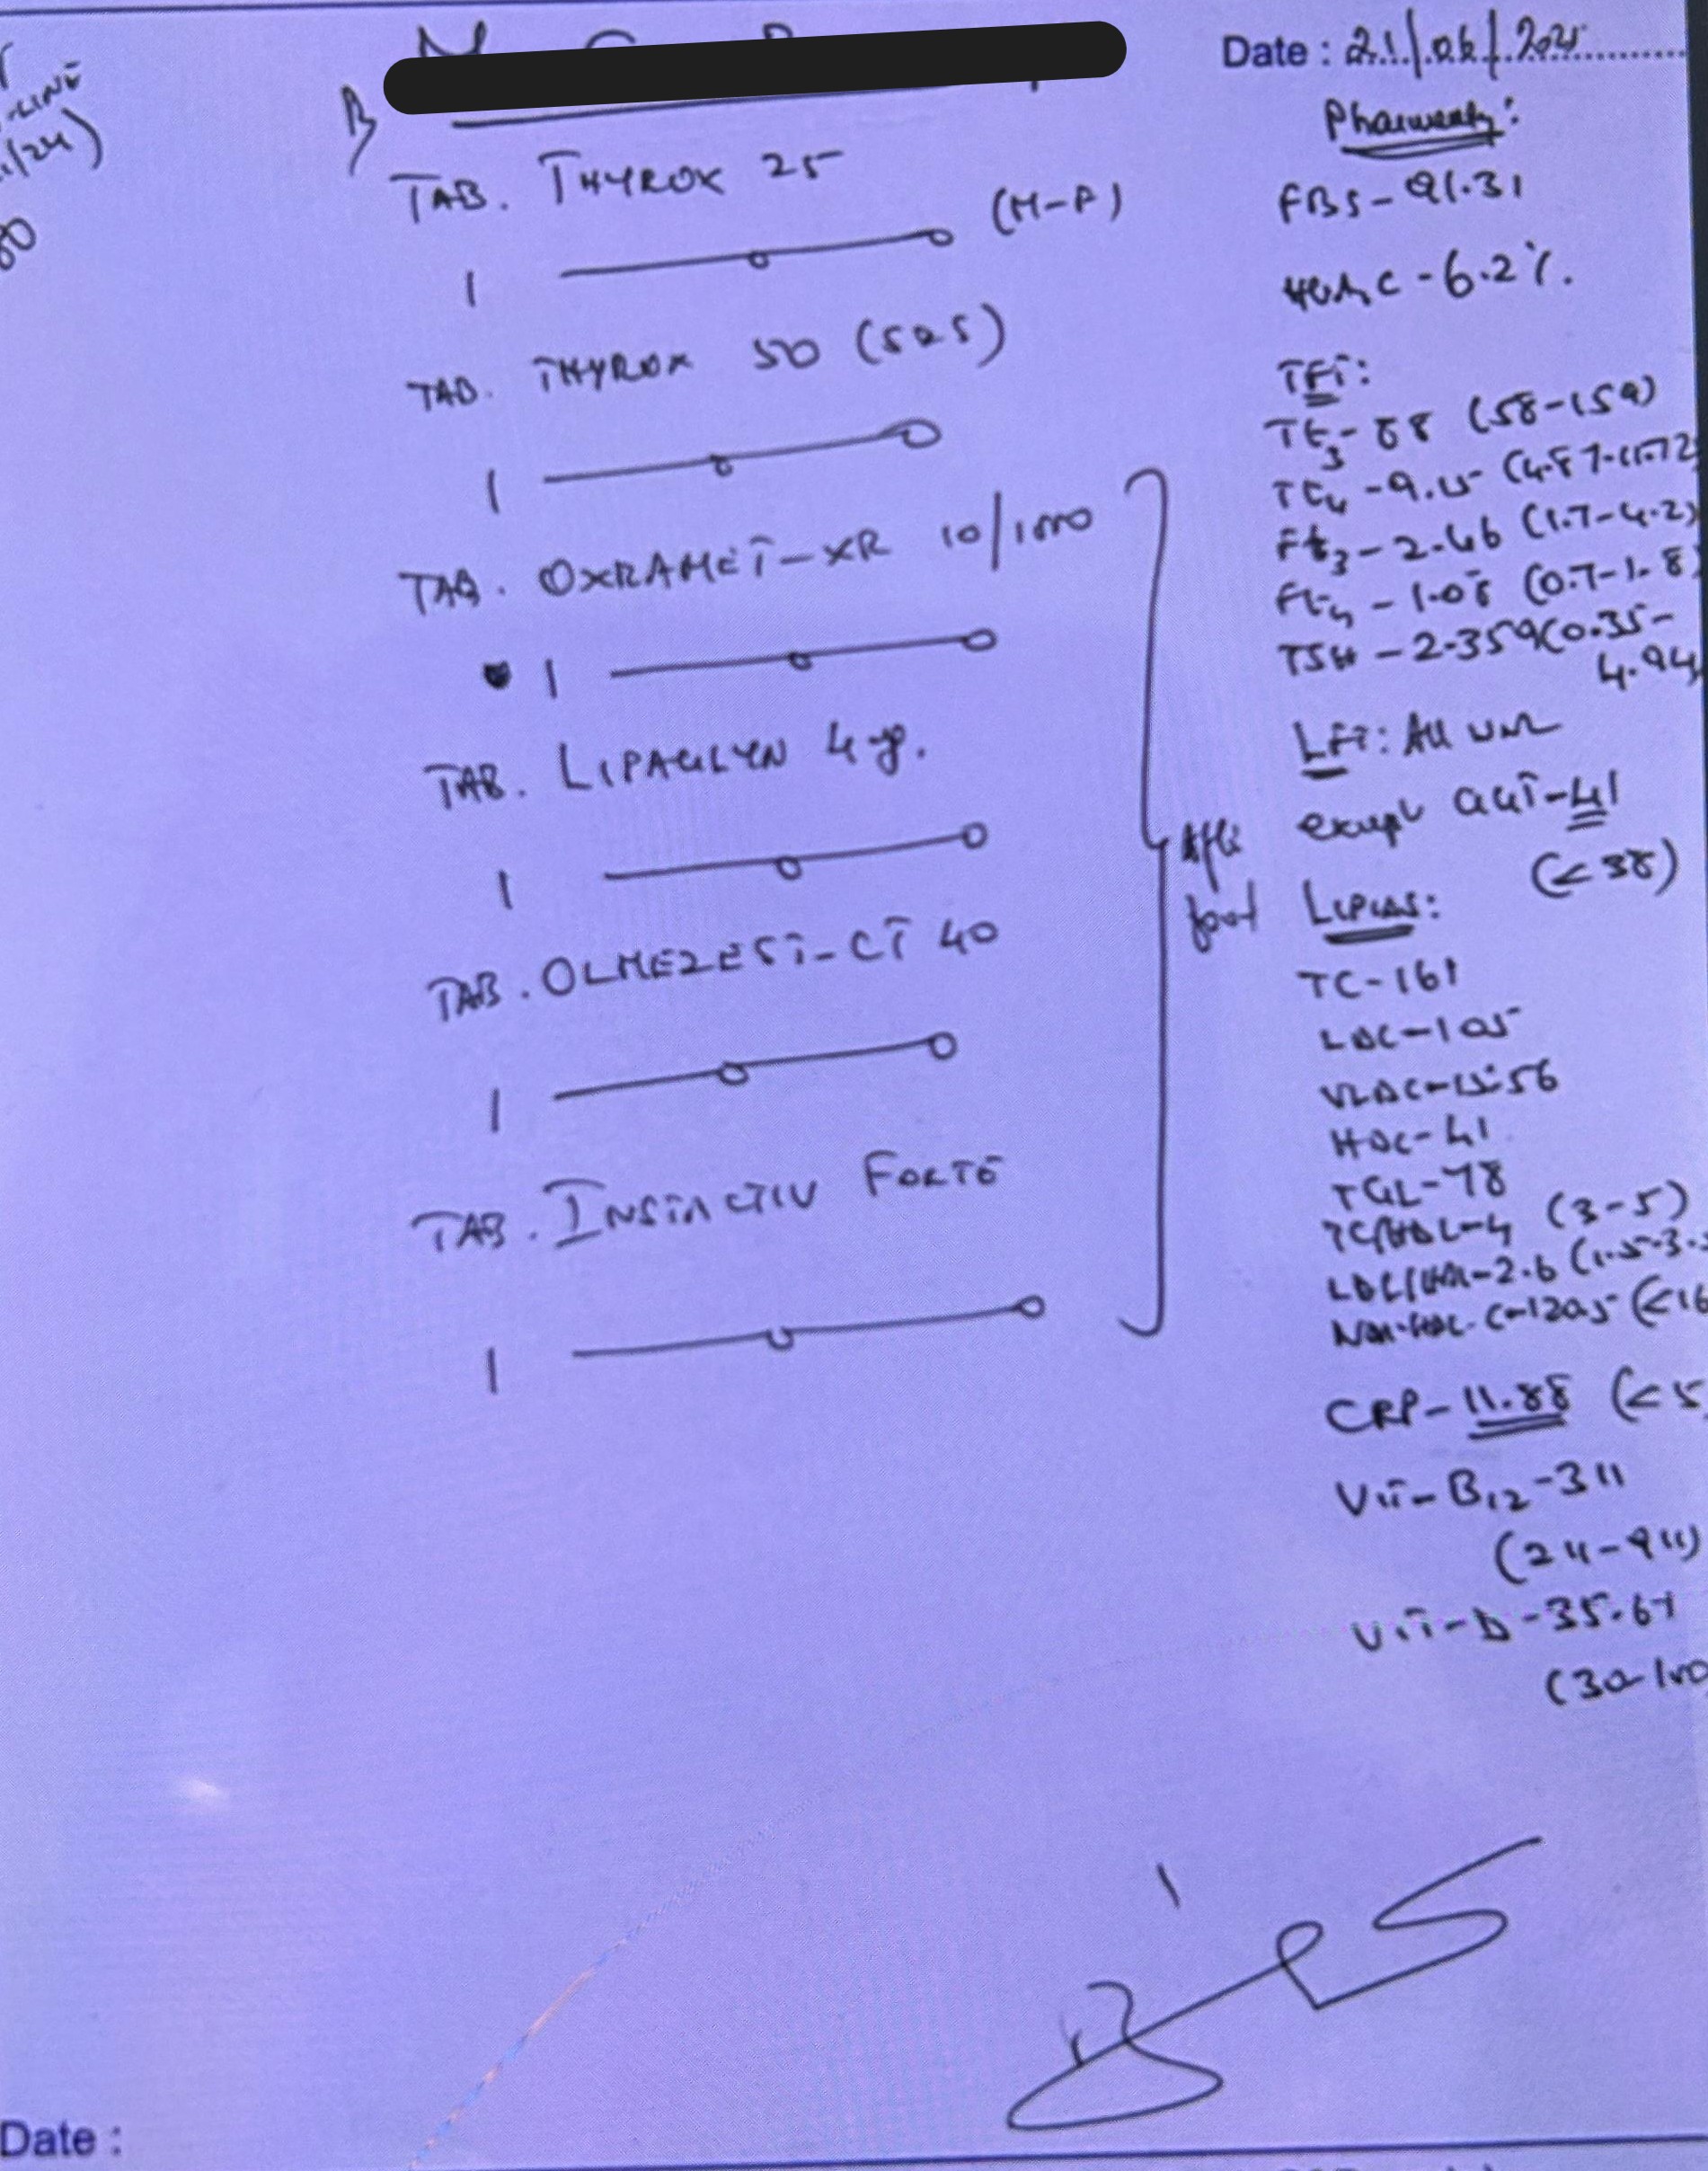 -LINE
/24)
Date : 21/06/2025
TAB. THYROX 25
1 — 0 — 0 (M-F)
TAB. THYROX 50 (S&S)
1 — 0 — 0
TAB. OXRAMET-XR 10/1000
1 — 0 — 0
TAB. LIPAGLYN 4 mg.
1 — 0 — 0
TAB. OLMEZEST-CT 40
1 — 0 — 0
TAB. FORTE
1 — 0 — 0
After
food
FBS - 91.31
HbA1c - 6.2%.
TFT:
TT3 - 88 (58-159)
TT4 - (4.87-11.72
FT3 - 2.46 (1.7-4.2)
FT4 - 1.08 (0.7-1.8)
TSH - 2.359 (0.35-
4.94
LFT: All WNL
except GGT-41
(<38)
LIPIDS:
TC-161
LDC-105
VLDC-15.56
HDC-41
TGL-78
TC/HDL-4 (3-5)
LDL/HDL-2.6
Non-HDL-C-120.5
CRP-11.88 (<5
Vit-B12-311
(211-911)
Vit-D-35.67
(30-100
Date :